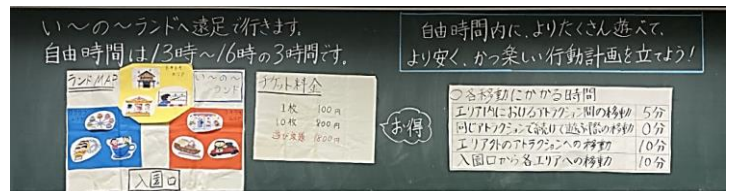 い～の～ランドへ遠足で行きます。
自由時間は13時～16時の3時間です。
自由時間内に、よりたくさん遊べて、
より安く、かつ楽しい行動計画を立てよう!
ランドMAP
い～の～
ランド
入園口
チケット料金
1枚 100円
10枚 800円
遊び放題 1800円
お得
○各移動にかかる時間
エリア内におけるアトラクション間の移動 5分
同じアトラクションで続けて遊ぶ際の移動 0分
エリア外のアトラクションへの移動 10分
入園口から各エリアへの移動 10分